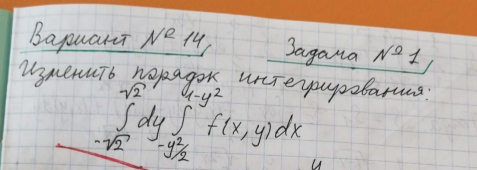 Вариант № 14,
Задача № 1,
Изменить порядок интегрирования:
√2 1-y²
∫ dy ∫ f(x, y) dx
-√2 -y²/2
y